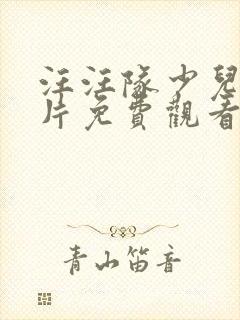 汪汪隊少兒
片免費觀看
青山笛音